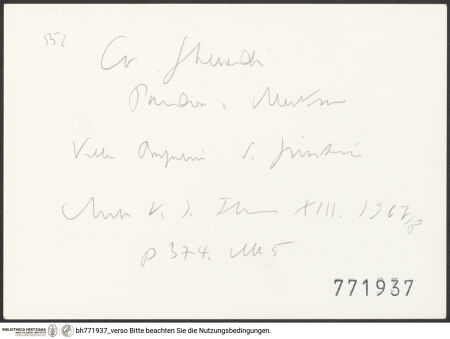 552
Cr. Gherardi
Pandora, Merkur
Villa Bufalini S. Giustino
XIII. 1967/8
p 374. 5
771937
BIBLIOTHECA HERTZIANA
bh771937_verso Bitte beachten Sie die Nutzungsbedingungen.